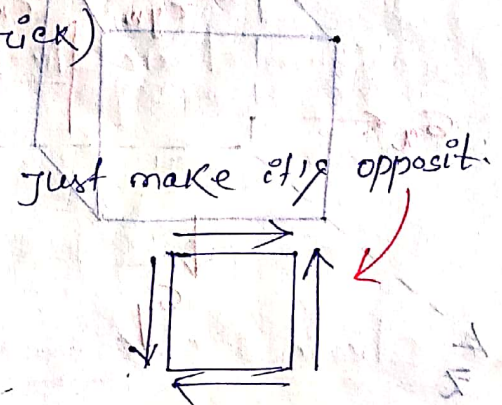 rick)
Just make it's opposit.